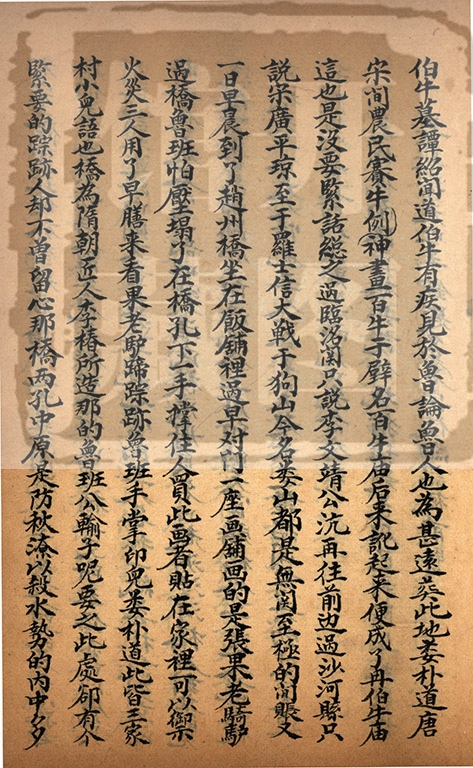 伯牛墓譚紹聞道伯牛有疾見於魯論魯人也為甚遠葬此地婁朴道唐
宋間農民賽牛例神畫百牛于壁名百牛庙后来訛起来便成了冉伯牛庙
這也是沒要緊話総之過臨洺関只説李文靖公沆再往前边過沙河縣只
説宋廣平璟至于羅士信大戦于狗山今名婁山都是無関至極的閒賬又
一日早晨到了趙州橋坐在飯鋪裡過早对門一座画鋪画的是張果老騎馿
過橋魯班怕壓塌了在橋孔下一手撑住人買此画者貼在家裡可以御
火災三人用了早膳来看果老馿蹄踪跡魯班手掌印児婁朴道此皆三家
村小児語也橋為隋朝匠人李椿所造那的魯班公輸子呢要之此處卻有个
緊要的踪跡人却不曽留心那橋両孔中原是防秋潦以殺水勢的内中多